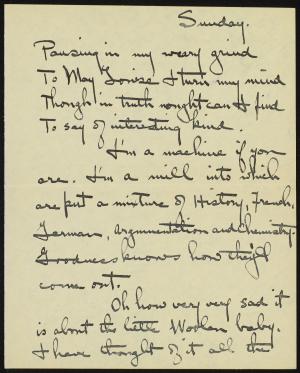 Sunday.
Pausing in my weary grind
To May Louise I turn my mind
Though in truth nought can I find
To say of interesting kind.
I'm a machine if you
are. I'm a mill into which
are put a mixture of History, French,
German, Argumentation and Chemistry.
Goodness knows how they'll
come out.
Oh how very very sad it
is about the little Woolen baby.
I have thought of it all the